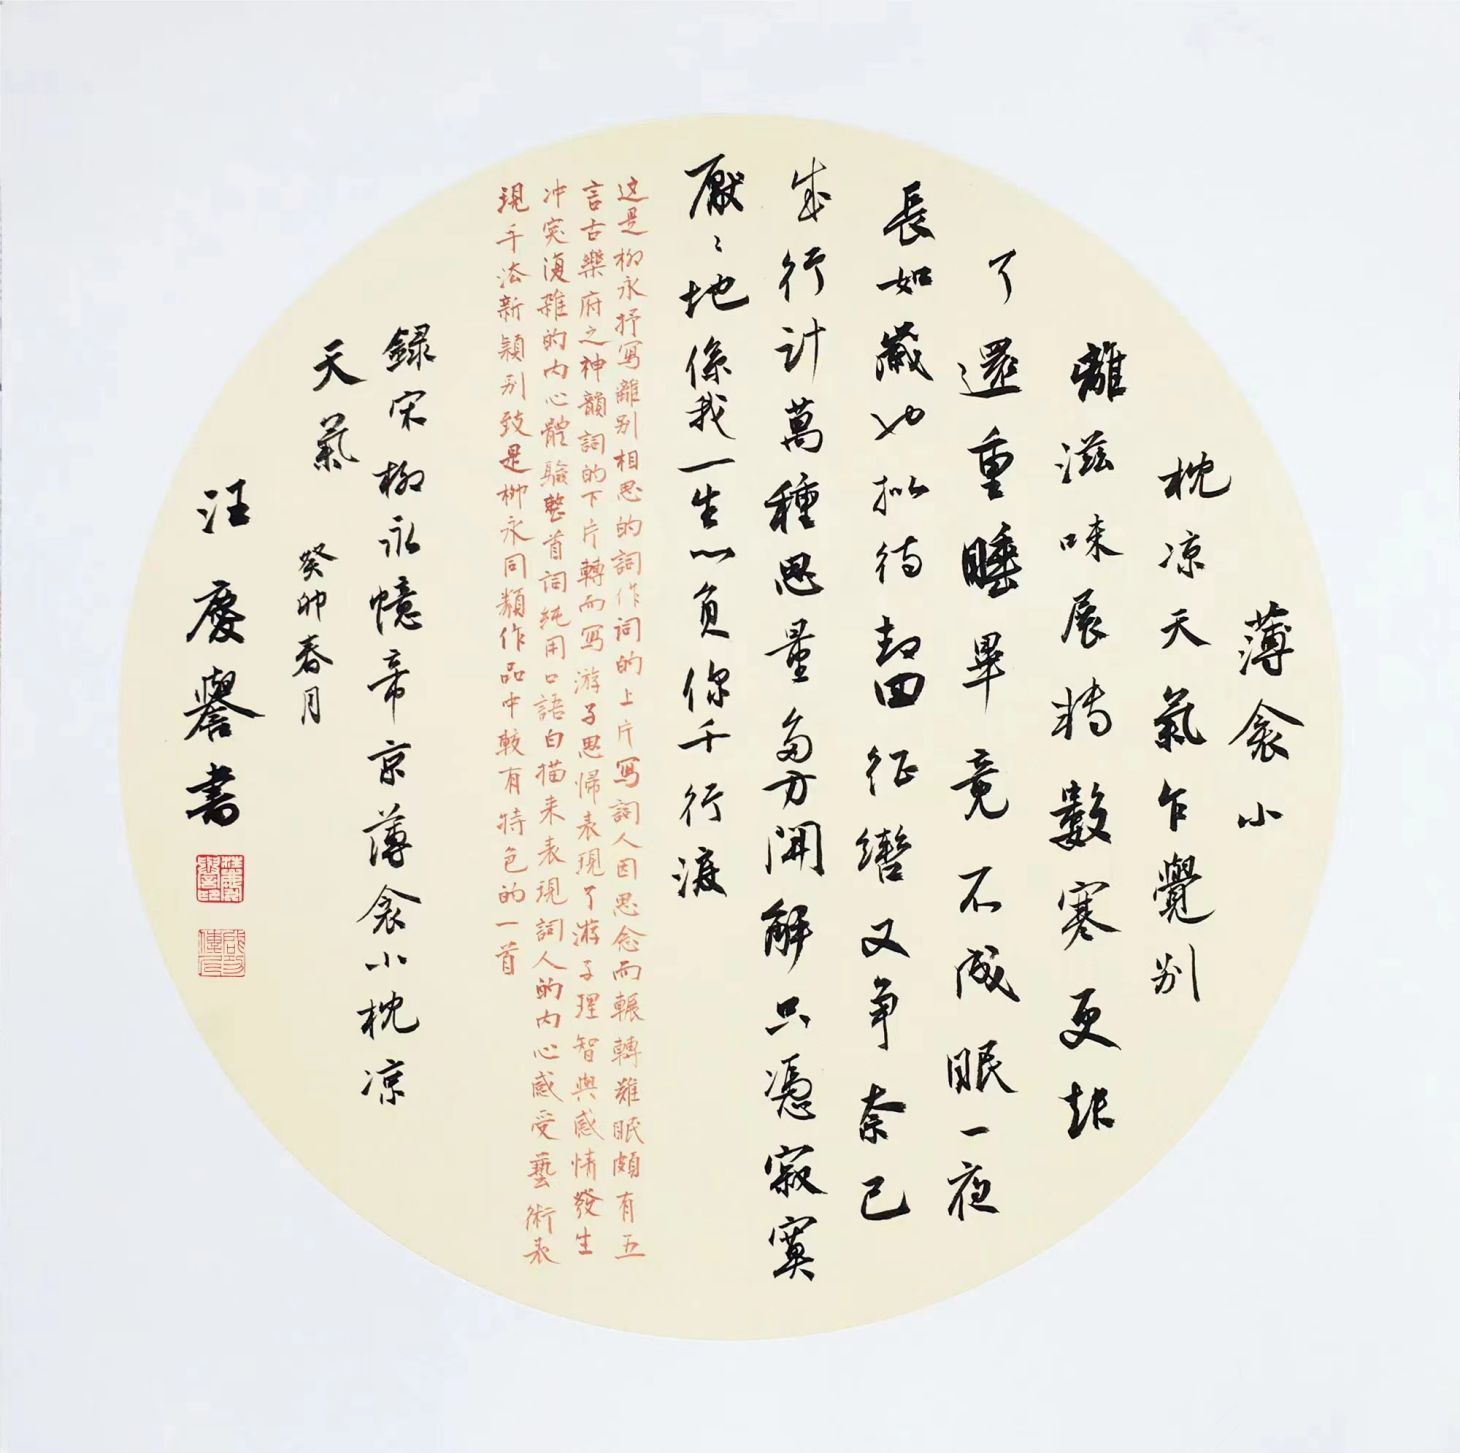 薄衾小
枕凉天氣乍覺别
離滋味展轉數寒更起
了還重睡畢竟不成眠一夜
長如歲也拟待却回征轡又爭奈已
成行計萬種思量多方開解只憑寂寞
厭々地係我一生心負你千行淚
这是柳永抒寫離别相思的詞作词的上片寫詞人因思念而輾轉難眠頗有五
言古樂府之神韻詞的下片轉而寫游子思歸表現了游子理智與感情發生
冲突復雜的内心體驗整首詞純用口語白描来表現詞人的内心感受藝術表
現手法新穎别致是柳永同類作品中較有特色的一首
録宋柳永憶帝京薄衾小枕凉
天氣
癸卯春月
汪慶譽書